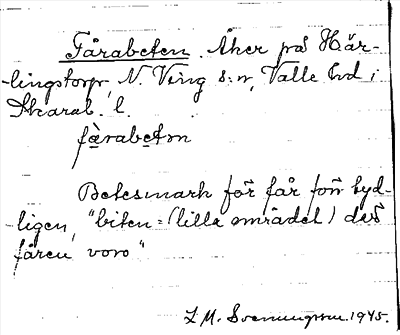 Fårabeten. Åker på Här-
lingstorp, N. Ving s:n, Valle hd i
Skarab. l.
fårabetɔn
Betesmark för får förr tyd-
ligen, "biten = (lilla området) där
fåren voro"
Z. M. Svenungsson. 1945.